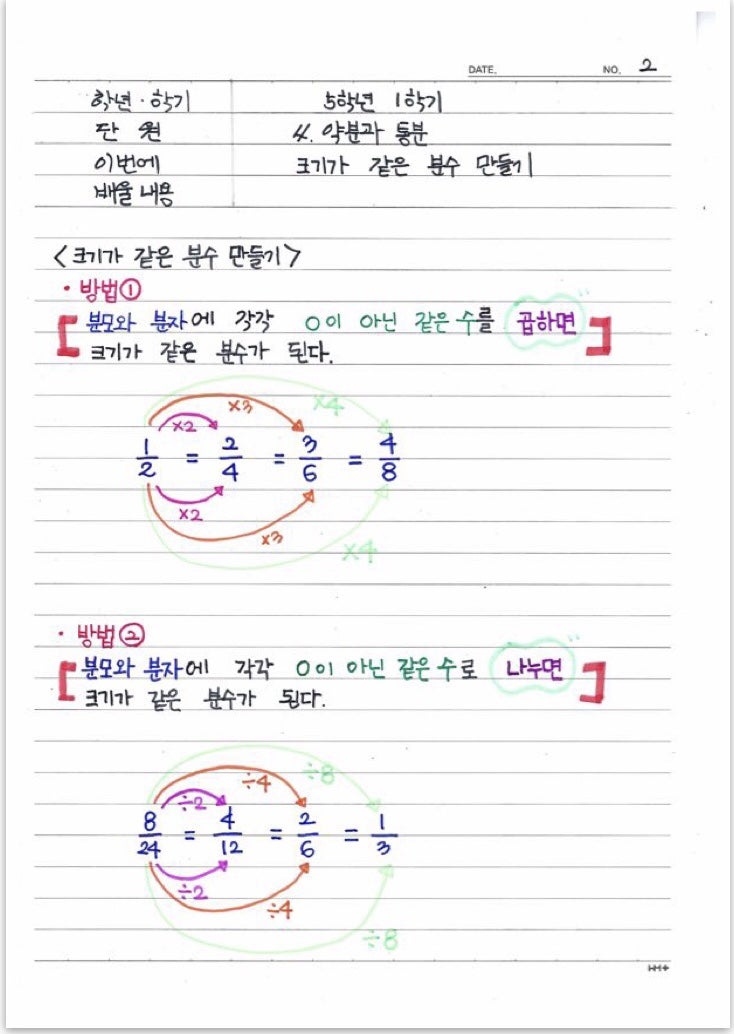 DATE. NO. 2
학년·학기 5학년 1학기
단 원 4. 약분과 통분
이번에 크기가 같은 분수 만들기
배울 내용
<크기가 같은 분수 만들기>
· 방법①
[분모와 분자에 각각 0이 아닌 같은 수를 곱하면]
크기가 같은 분수가 된다.
×3 ×4
×2
1/2 = 2/4 = 3/6 = 4/8
×2
×3 ×4
· 방법②
[분모와 분자에 각각 0이 아닌 같은 수로 나누면]
크기가 같은 분수가 된다.
÷4 ÷8
÷2
8/24 = 4/12 = 2/6 = 1/3
÷2
÷4
÷8